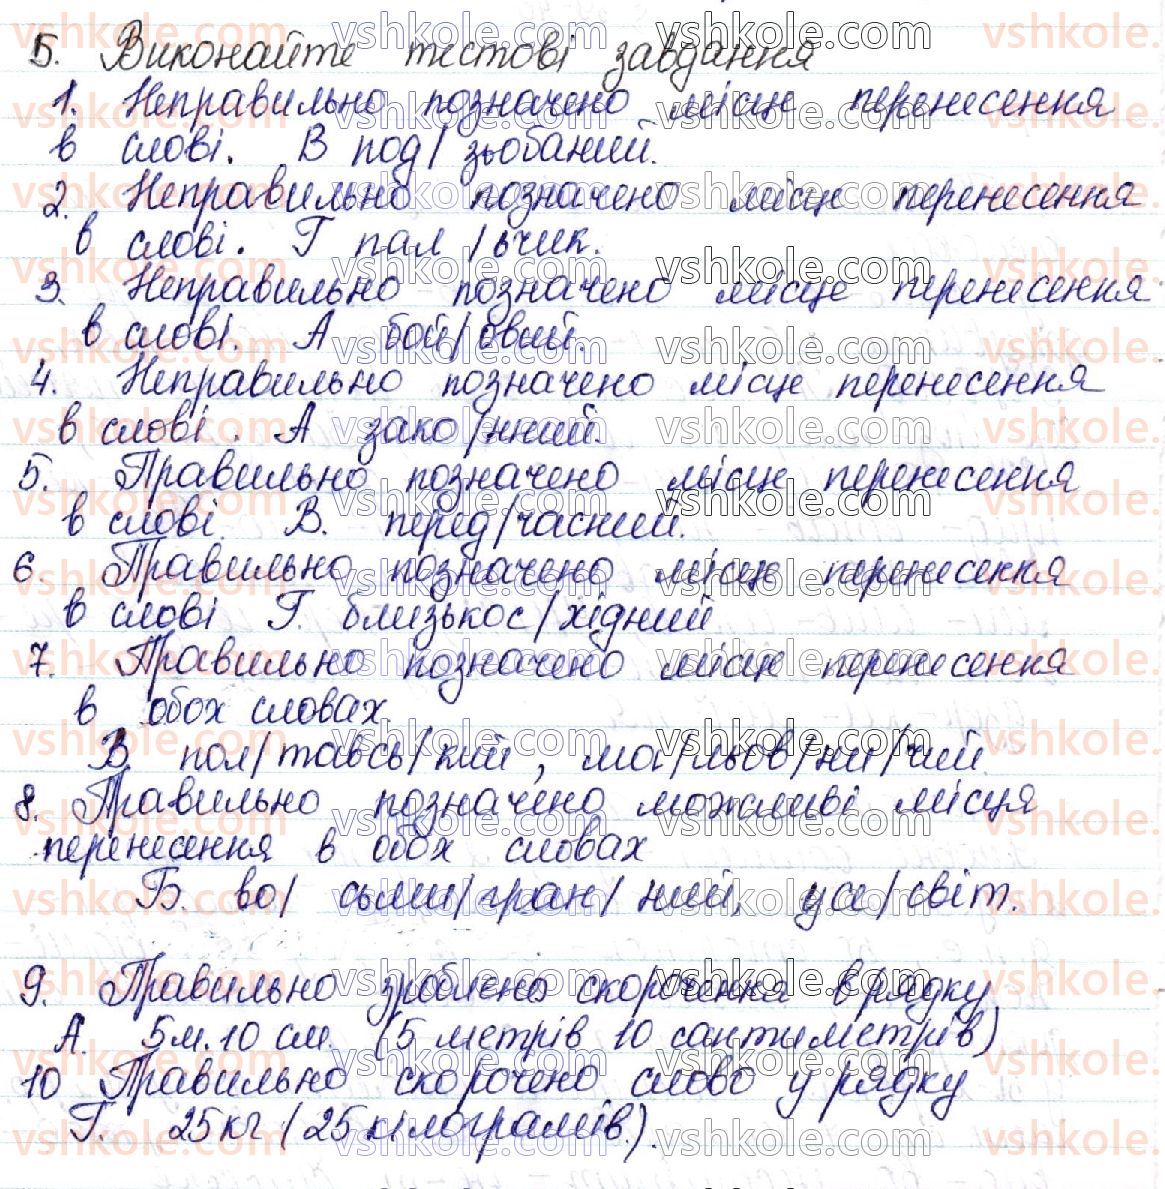 5. Виконайте тестові завдання
1. Неправильно позначено місце перенесення
в слові. В под/зьобаний.
2. Неправильно позначено місце перенесення
в слові. Г пал/ьчик.
3. Неправильно позначено місце перенесення
в слові. А бой/овий.
4. Неправильно позначено місце перенесення
в слові. А зако/нний.
5. Правильно позначено місце перенесення
в слові В. перед/часний.
6. Правильно позначено місце перенесення
в слові Г. близькос/хідний
7. Правильно позначено місце перенесення
в обох словах.
В. пол/тавсь/кий, ма/льов/ни/чий.
8. Правильно позначено можливі місця
перенесення в обох словах
Б. во/сьми/гран/ний, усе/світ.
9. Правильно зроблено скорочення в рядку
А. 5м.10 см. (5 метрів 10 сантиметрів)
10 Правильно скорочено слово у рядку
Г. 25кг (25кілограмів.).
vshkole.com